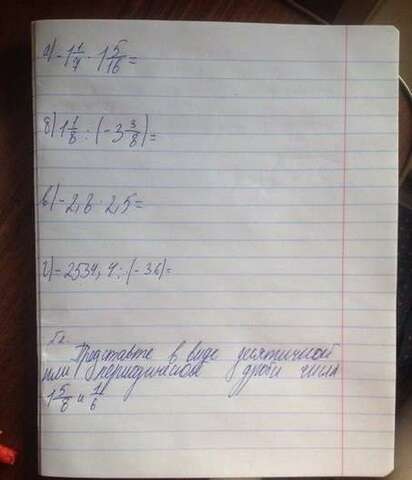 а) -1 1/7 · 1 5/16 =
б) 1 1/8 : (-3 3/8) =
в) -2,8 · 2,5 =
г) -2534, 4 : (-36) =
Представьте в виде десятичной
или периодической дроби числа
1 5/8 и